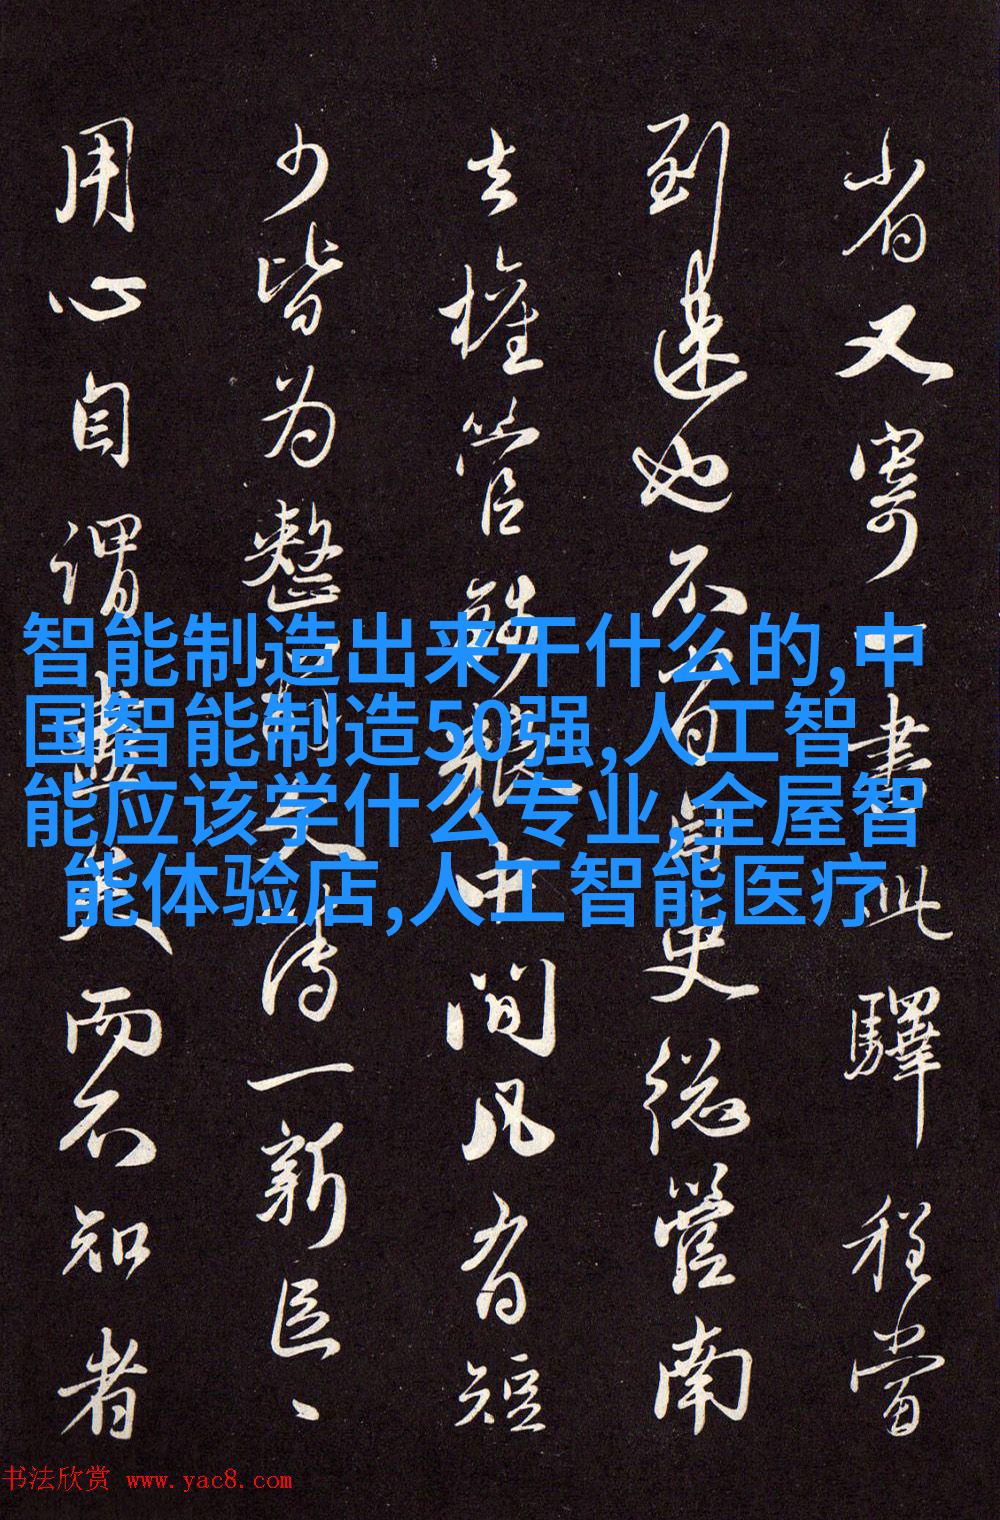 省又寄一書此驛程當
到速也不史總營南
去權管中間凡有短
少皆为整一新
用心自謂盡矣而不知者
智能制造出来干什么的,中
国智能制造50强,人工智
能应该学什么专业,全屋智
能体验店,人工智能医疗
书法欣赏 www.yac8.com